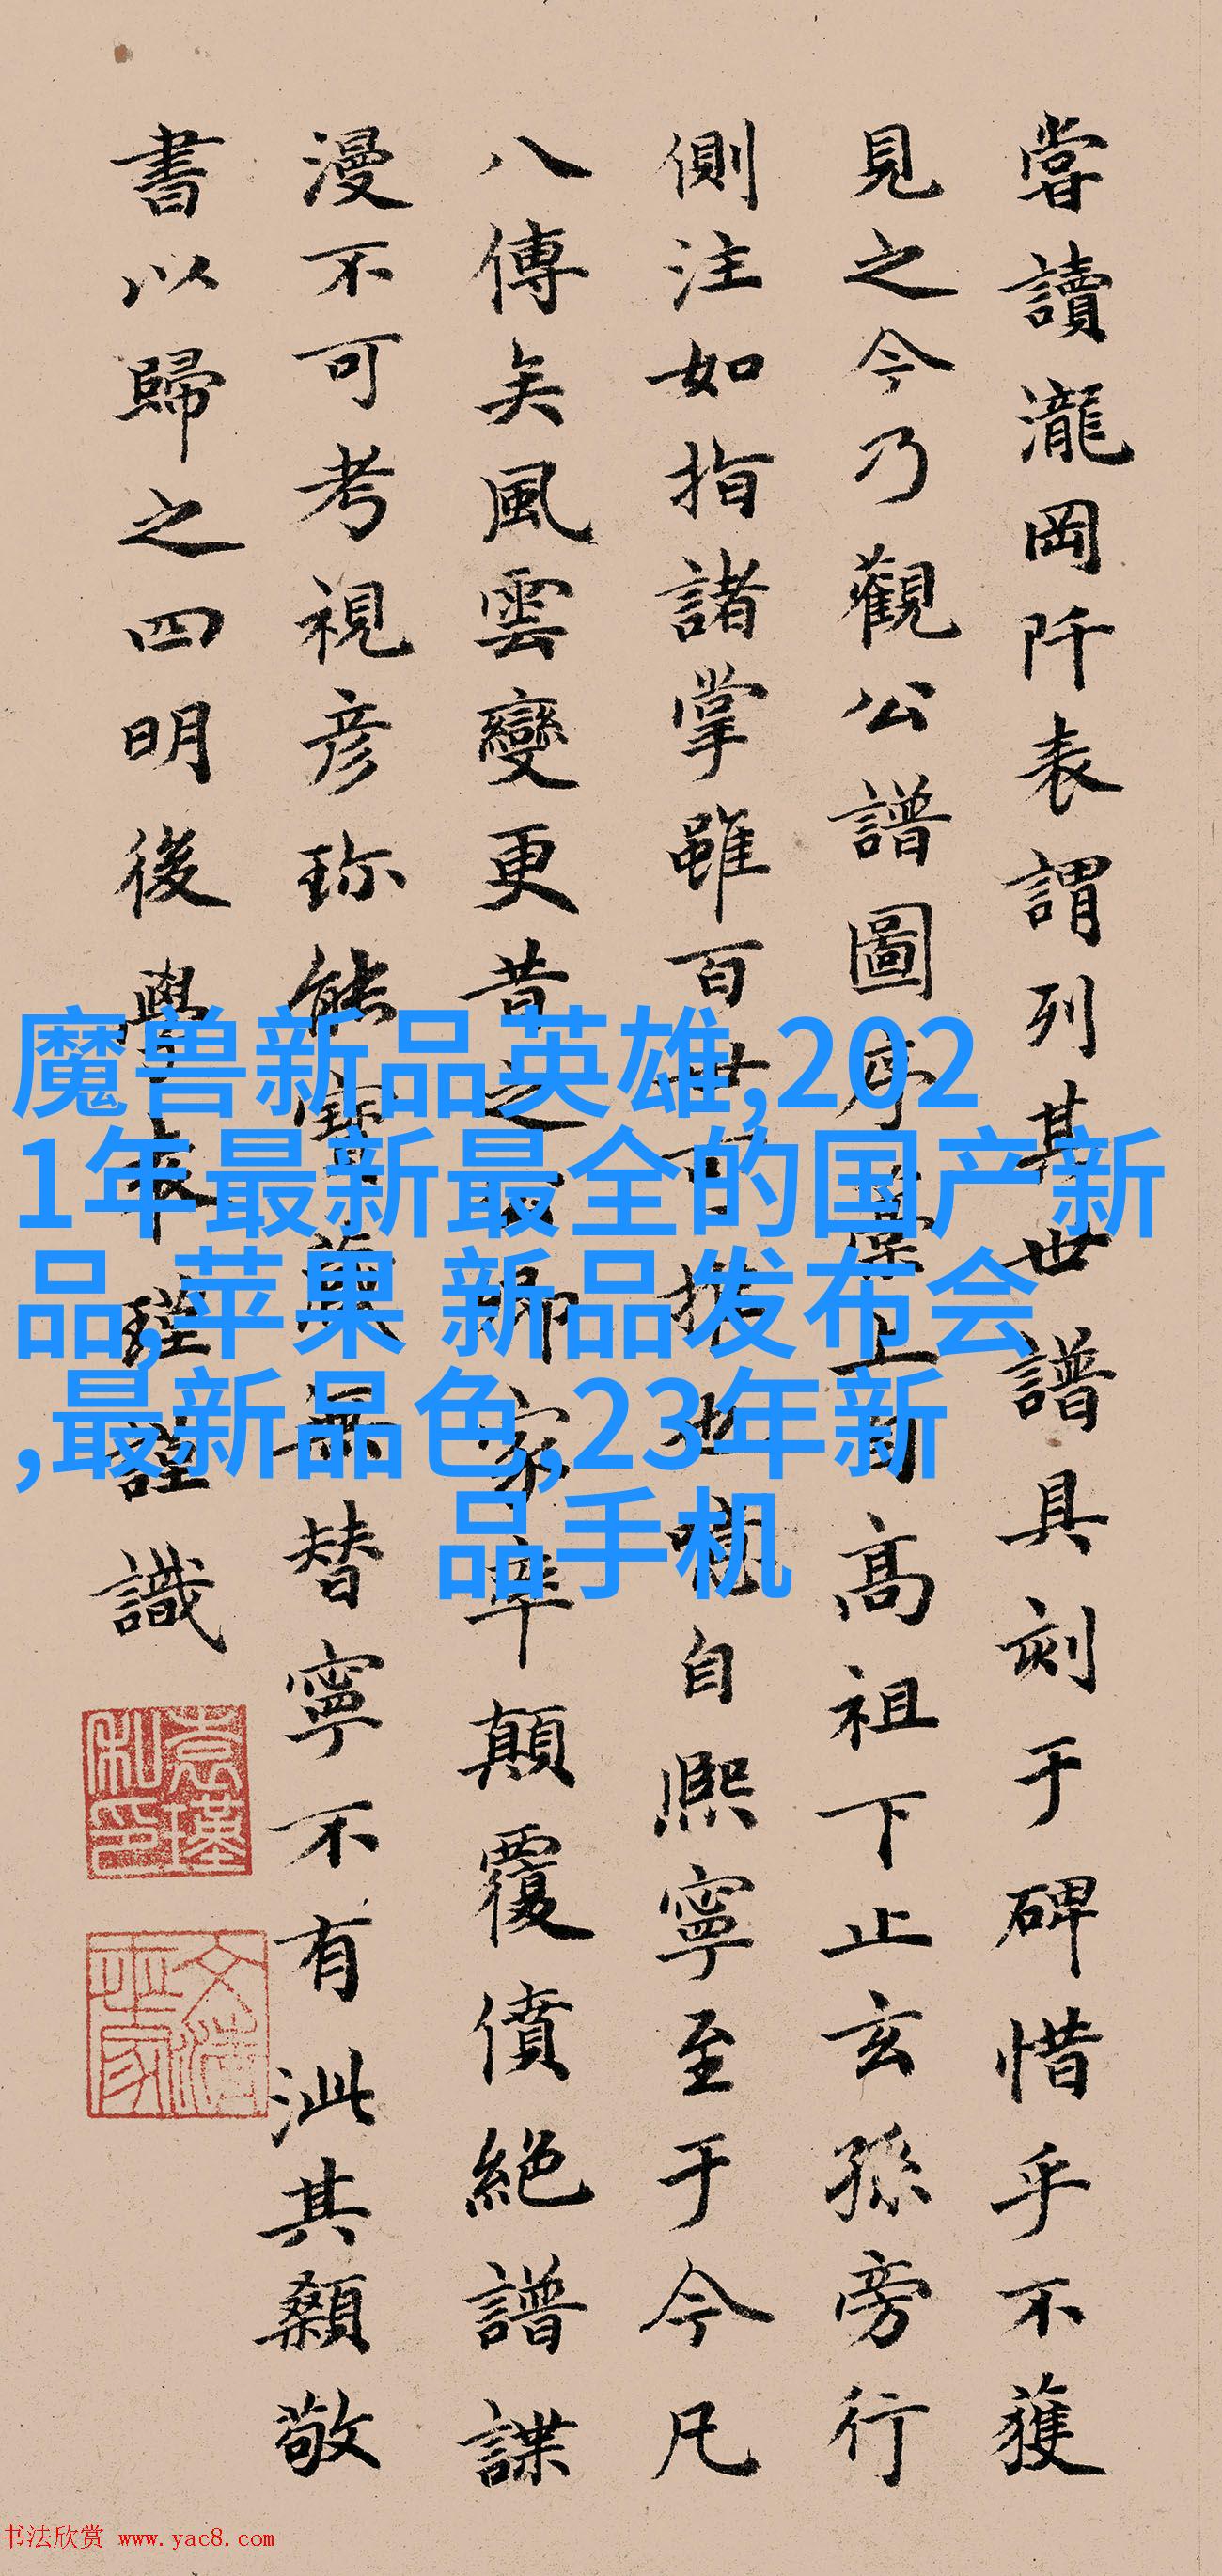 嘗讀瀧岡阡表謂列其世譜具刻于碑惜乎不獲
見之今乃觀公譜圖序 高祖下止玄孫旁行
側注如指諸掌雖百世 自熙寧至于今凡
八傳矣風雲變更昔之 家率顛覆僨絕譜諜
漫不可考視彥珎能寶 無替寧不有泚其顙敬
書以歸之四明後學袁 瑾謹識
袁瑾私印
魔兽新品英雄,202
1年最新最全的国产新
品,苹果 新品发布会
,最新品色,23年新
品手机
书法欣赏 www.yac8.com